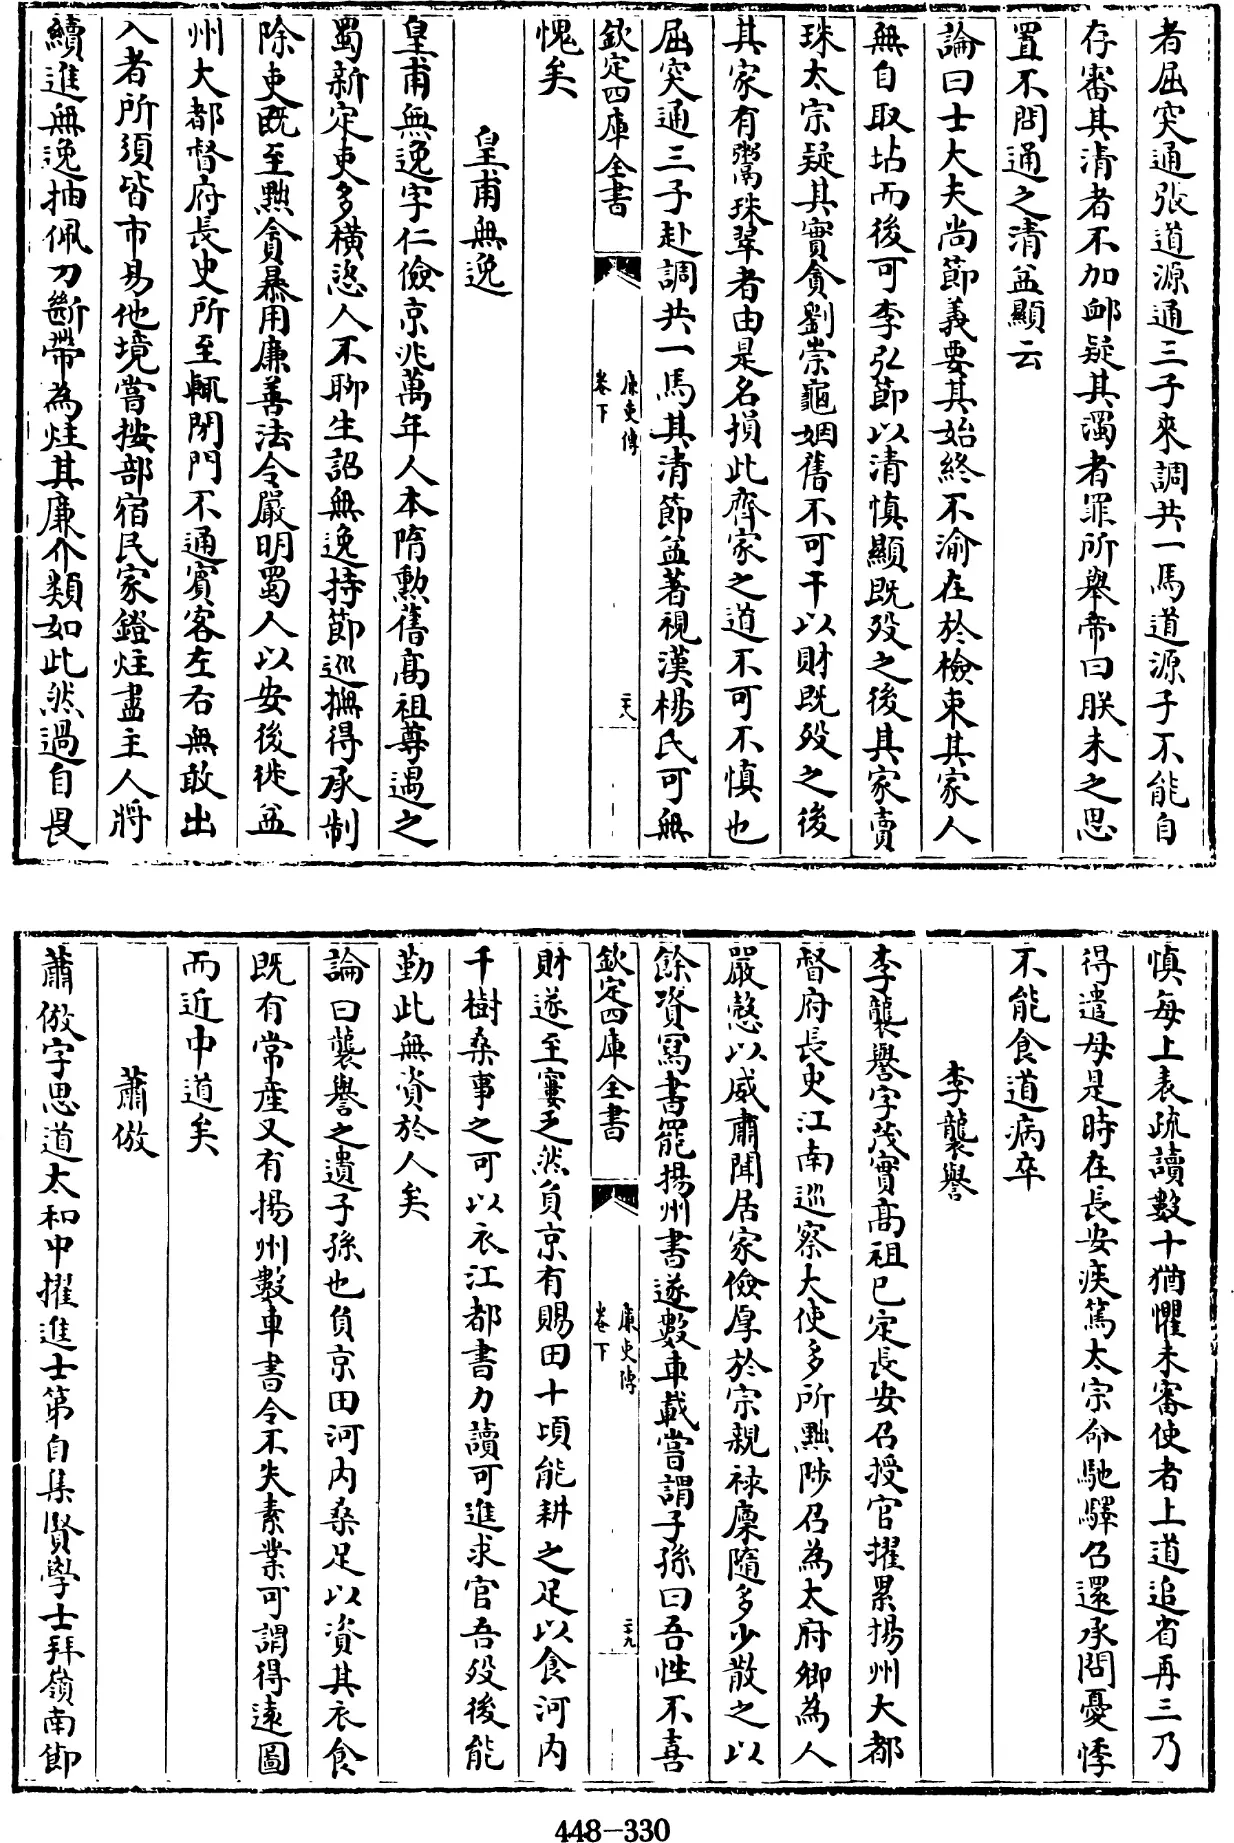 者屈突通張道源通三子來調共一馬道源子不能自
存審其清者不加䘏疑其濁者罪所舉帝曰朕未之思
置不問通之清益顯云
論曰士大夫尚節義要其始終不渝在於檢束其家人
無自取玷而後可李弘節以清慎顯既殁之後其家賣
珠太宗疑其實貪劉崇龜姻舊不可干以財既殁之後
其家有鬻珠翠者由是名損此齊家之道不可不慎也
屈突通三子赴調共一馬其清節益著視漢楊氏可無
欽定四庫全書
廉吏傳
卷下
二十八
愧矣
皇甫無逸
皇甫無逸字仁儉京兆萬年人本隋勲舊高祖尊遇之
蜀新定吏多横恣人不聊生詔無逸持節巡撫得承制
除吏既至黜貪暴用廉善法令嚴明蜀人以安後徙益
州大都督府長史所至輒閉門不通賓客左右無敢出
入者所須皆市易他境嘗按部宿民家鐙炷盡主人將
續進無逸抽佩刀斷帶為炷其廉介類如此然過自畏
慎每上表疏讀數十猶懼未審使者上道追省再三乃
得遣母是時在長安疾篤太宗命馳驛召還承問憂悸
不能食道病卒
李襲譽
李襲譽字茂實高祖已定長安召授官擢累揚州大都
督府長史江南巡察大使多所黜陟召為太府卿為人
嚴慤以威肅聞居家儉厚於宗親禄廩隨多少散之以
餘資寫書罷揚州書遂數車載嘗謂子孫曰吾性不喜
欽定四庫全書
廉吏傳
卷下
二十九
財遂至窶乏然負京有賜田十頃能耕之足以食河内
千樹桑事之可以衣江都書力讀可進求官吾殁後能
勤此無資於人矣
論曰襲譽之遺子孫也負京田河内桑足以資其衣食
既有常産又有揚州數車書令不失素業可謂得逺圖
而近中道矣
蕭倣
蕭倣字思道太和中擢進士第自集賢學士拜嶺南節
448-330